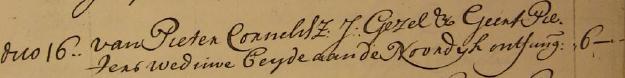 dito 16.. van Pieter Cornelisz: J: Gezel & Geert Pie-
ters weduwe beyde aan de Noordyk ontfang: 6—